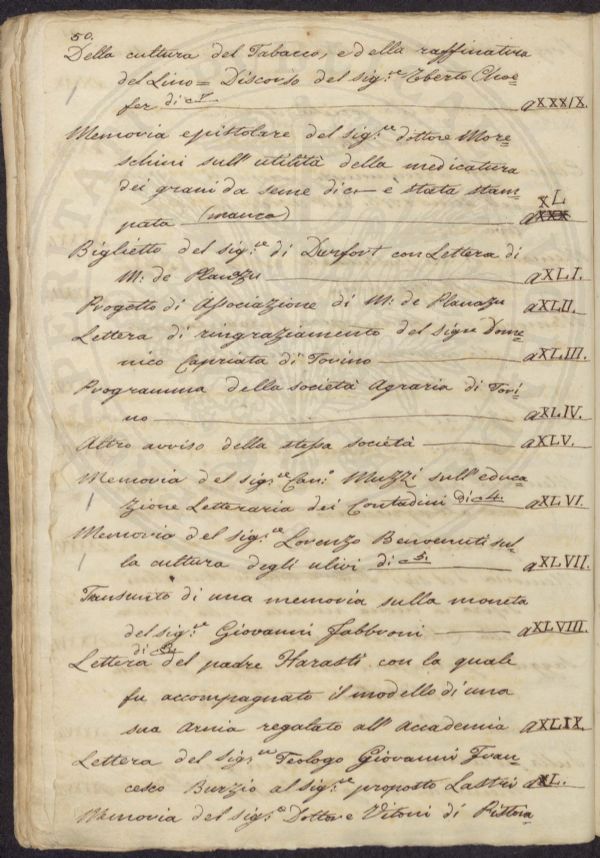 50.
Della cultura del Tabacco, e della raffinatura
del Lino = Discorso del sig:re Eberto Choe=
fer di c 7 a XXXIX.
Memoria epistolare del sig:re dottore More=
schini sull'utilità della medicatura
dei grani da seme di c è stata stam=
pata (manca) a XXX XL
Biglietto del sig:re di Durfort con Lettera di
M: de Planazu a XLI.
Progetto di Associazione di M: de Planazu a XLII.
Lettera di ringraziamento del sigre Dome=
nico Capriata di Torino a XLIII.
Programma della società Agraria di Tori=
no a XLIV.
Altro avviso della stessa società a XLV.
Memoria del sig:re Can:o Muzzi sull'educa=
zione Letteraria dei Contadini di c 4. a XLVI.
Memoria del sig:re Lorenzo Benvenuti sul=
la cultura degli ulivi di c 5. a XLVII.
Transunto di una memoria sulla moneta
del sig:re Giovanni Fabbroni a XLVIII.
Lettera di c del padre Harasti con la quale
fu accompagnato il modello di una
sua Arnia regalato all'Accademia a XLIX.
Lettera del sig:re Teologo Giovanni Fran=
cesco Burzio al sig:re proposto Lastri a L.
Memoria del sig:e Dottore Vitoni di Pistoia